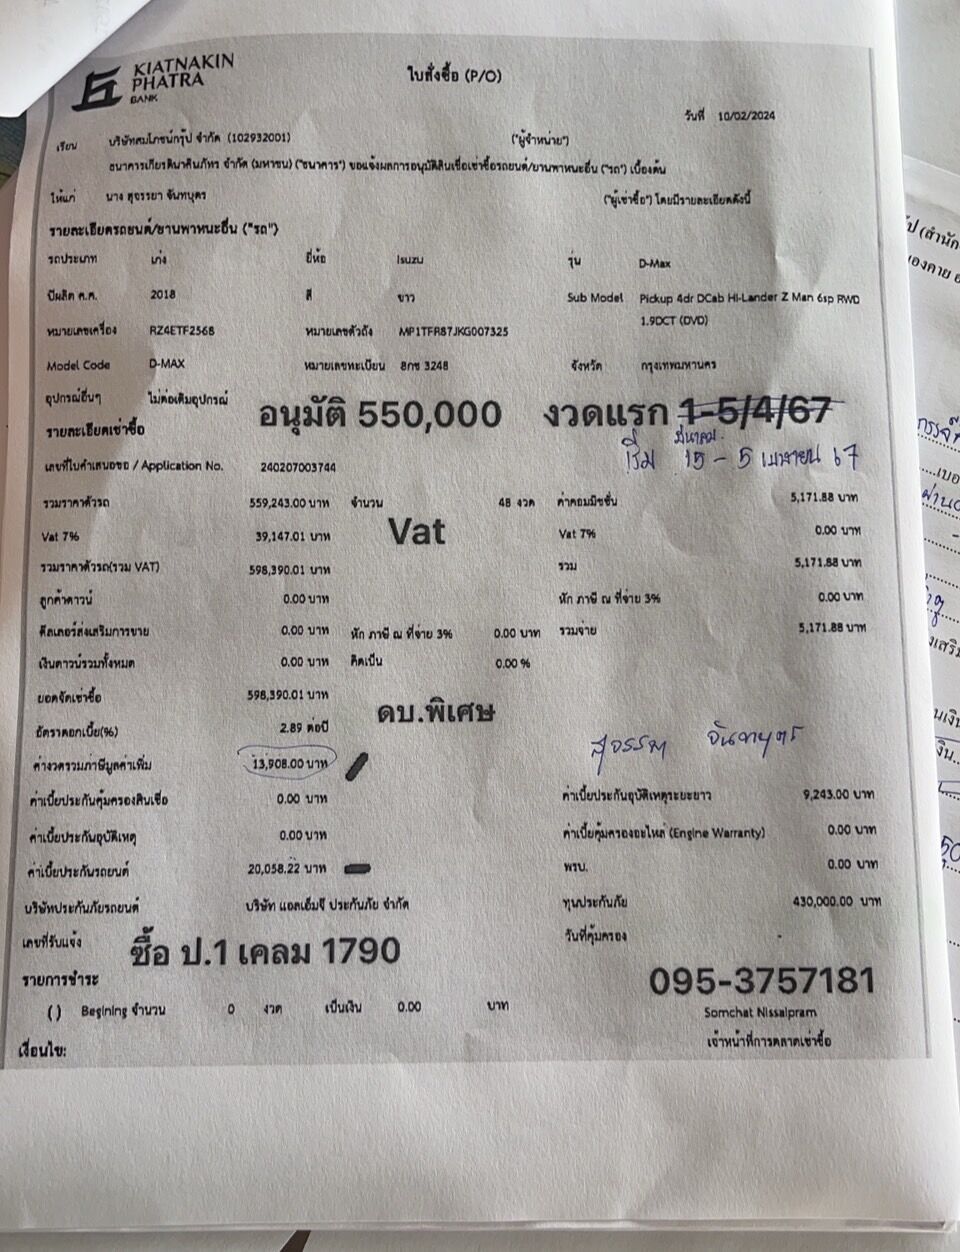 KIATNAKIN
PHATRA
BANK
ใบสั่งซื้อ (P/O)
วันที่ 10/02/2024
เรียน บริษัทสมโภชน์กรุ๊ป จำกัด (102932001) ("ผู้จำหน่าย")
ธนาคารเกียรตินาคินภัทร จำกัด (มหาชน) ("ธนาคาร") ขอแจ้งผลการอนุมัติสินเชื่อเช่าซื้อรถยนต์/ยานพาหนะอื่น ("รถ") เบื้องต้น
ให้แก่ นาง สุจรรยา จันทบุตร ("ผู้เช่าซื้อ") โดยมีรายละเอียดดังนี้
รายละเอียดรถยนต์/ยานพาหนะอื่น ("รถ")
รถประเภท เก๋ง ยี่ห้อ Isuzu รุ่น D-Max
ปีผลิต ค.ศ. 2018 สี ขาว Sub Model Pickup 4dr DCab Hi-Lander Z Man 6sp RWD
1.9DCT (DVD)
หมายเลขเครื่อง RZ4ETF2568 หมายเลขตัวถัง MP1TFR87JKG007325
Model Code D-MAX หมายเลขทะเบียน 8กช 3248 จังหวัด กรุงเทพมหานคร
อุปกรณ์อื่นๆ ไม่ต่อเติมอุปกรณ์
อนุมัติ 550,000 งวดแรก 1-5/4/67
รายละเอียดเช่าซื้อ
มีนาคม
เริ่ม 15 - 5 เมษายน 67
เลขที่ใบคำเสนอขอ / Application No. 240207003744
รวมราคาตัวรถ 559,243.00 บาท จำนวน 48 งวด ค่าคอมมิชชั่น 5,171.88 บาท
Vat 7% 39,147.01 บาท Vat Vat 7% 0.00 บาท
รวมราคาตัวรถ(รวม VAT) 598,390.01 บาท รวม 5,171.88 บาท
ลูกค้าดาวน์ 0.00 บาท หัก ภาษี ณ ที่จ่าย 3% 0.00 บาท
ดีลเลอร์ส่งเสริมการขาย 0.00 บาท หัก ภาษี ณ ที่จ่าย 3% 0.00 บาท รวมจ่าย 5,171.88 บาท
เงินดาวน์รวมทั้งหมด 0.00 บาท คิดเป็น 0.00 %
ยอดจัดเช่าซื้อ 598,390.01 บาท
ดบ.พิเศษ
อัตราดอกเบี้ย(%) 2.89 ต่อปี
สุจรรยา จันทบุตร
ค่างวดรวมภาษีมูลค่าเพิ่ม 13,908.00 บาท
ค่าเบี้ยประกันคุ้มครองสินเชื่อ 0.00 บาท ค่าเบี้ยประกันอุบัติเหตุระยะยาว 9,243.00 บาท
ค่าเบี้ยประกันอุบัติเหตุ 0.00 บาท ค่าเบี้ยคุ้มครองอะไหล่ (Engine Warranty) 0.00 บาท
ค่าเบี้ยประกันรถยนต์ 20,058.22 บาท พรบ. 0.00 บาท
บริษัทประกันภัยรถยนต์ บริษัท แอลเอ็มจี ประกันภัย จำกัด ทุนประกันภัย 430,000.00 บาท
เลขที่รับแจ้ง วันที่คุ้มครอง -
ซื้อ ป.1 เคลม 1790
รายการชำระ
095-3757181
( ) Begining จำนวน 0 งวด เป็นเงิน 0.00 บาท
Somchat Nissaipram
เจ้าหน้าที่การตลาดเช่าซื้อ
เงื่อนไข: